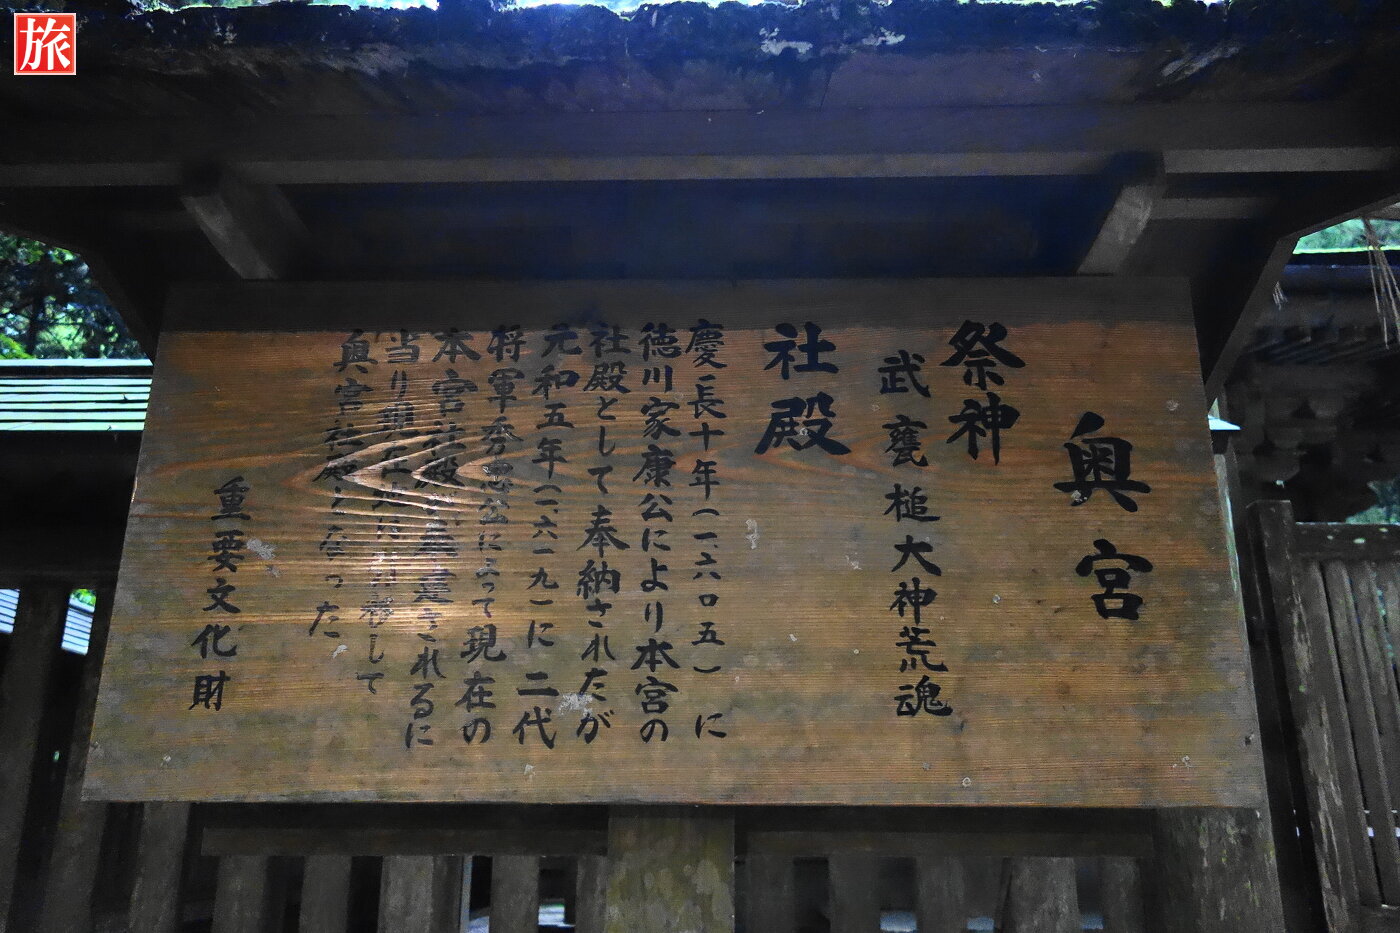 旅
奥宮
祭神
武甕槌大神荒魂
社殿
慶長十年(一六〇五)に
徳川家康公により本宮の
社殿として奉納されたが
元和五年(一六一九)に二代
将軍秀忠公によって現在の
本宮社殿が建されるに
当り現在地に引移して
奥宮社殿となった
重要文化財